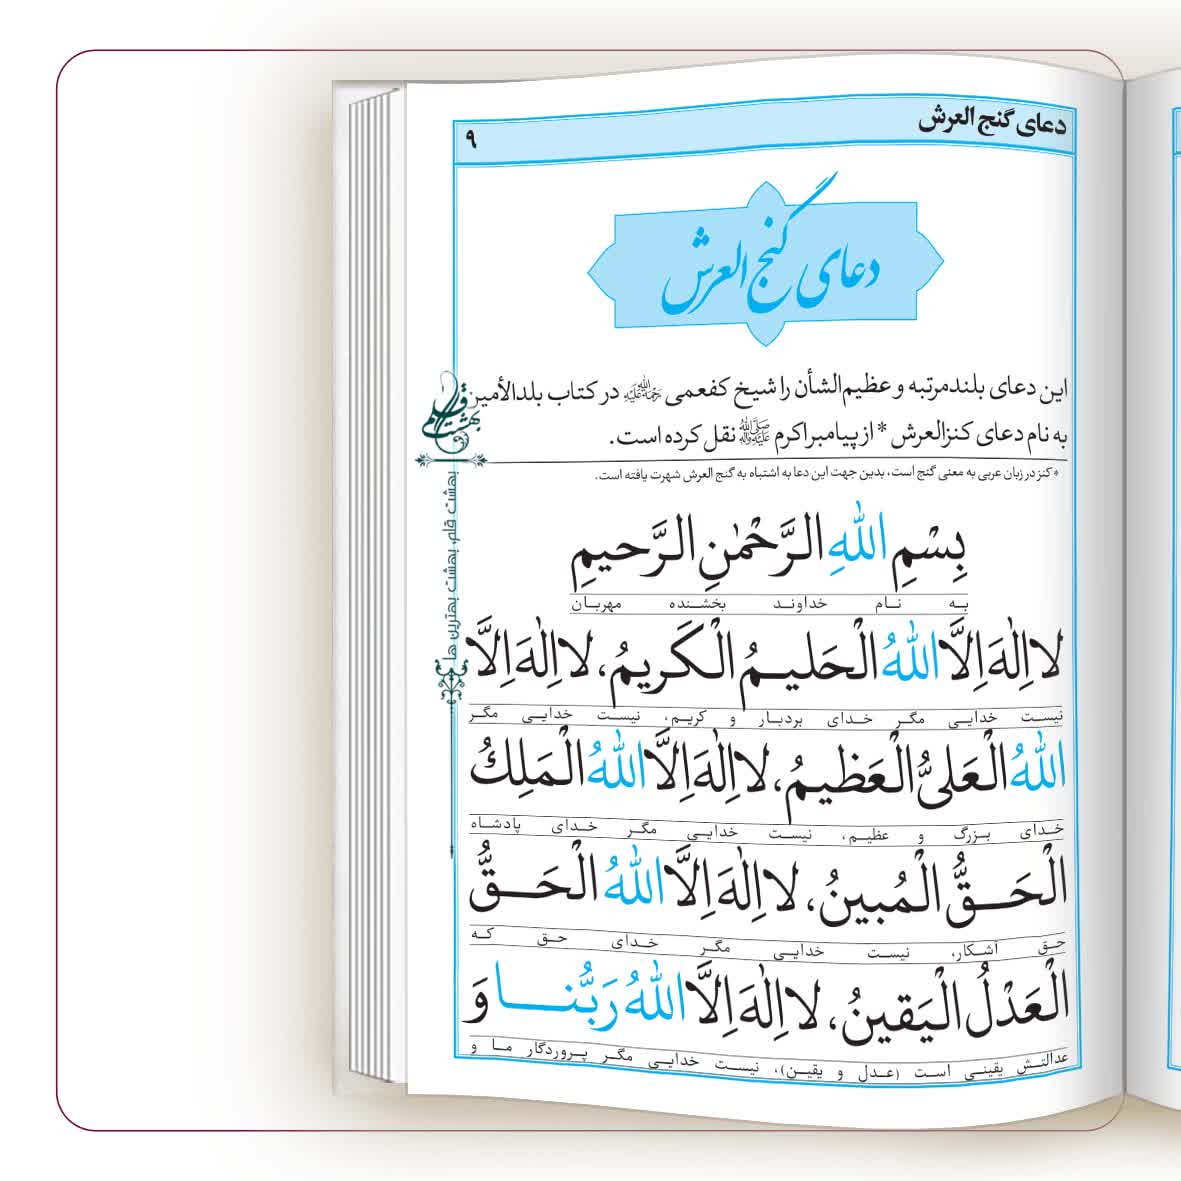 دعای گنج العرش
۹
دعای گنج العرش
این دعای بلندمرتبه و عظیم‌الشأن را شیخ کفعمی رحمة‌الله‌علیه در کتاب بلدالأمین
به نام دعای کنزالعرش * از پیامبر اکرم ﷺ نقل کرده است.
* کنز در زبان عربی به معنی گنج است، بدین جهت این دعا به اشتباه به گنج العرش شهرت یافته است.
بِسْمِ اللّٰهِ الرَّحْمٰنِ الرَّحیمِ
به نام خداوند بخشنده مهربان
لا اِلٰهَ اِلَّا اللّٰهُ الْحَلیمُ الْکَریمُ، لا اِلٰهَ اِلَّا
نیست خدایی مگر خدای بردبار و کریم، نیست خدایی مگر
اللّٰهُ الْعَلیُّ الْعَظیمُ، لا اِلٰهَ اِلَّا اللّٰهُ الْمَلِکُ
خدای بزرگ و عظیم، نیست خدایی مگر خدای پادشاه
الْحَقُّ الْمُبینُ، لا اِلٰهَ اِلَّا اللّٰهُ الْحَقُّ
حق آشکار، نیست خدایی مگر خدای حق که
الْعَدْلُ الْیَقینُ، لا اِلٰهَ اِلَّا اللّٰهُ رَبُّنا وَ
عدالتش یقینی است (عدل و یقین)، نیست خدایی مگر پروردگار ما و
بهشت قلم
بهشت قلم، بهشت بهترین ها